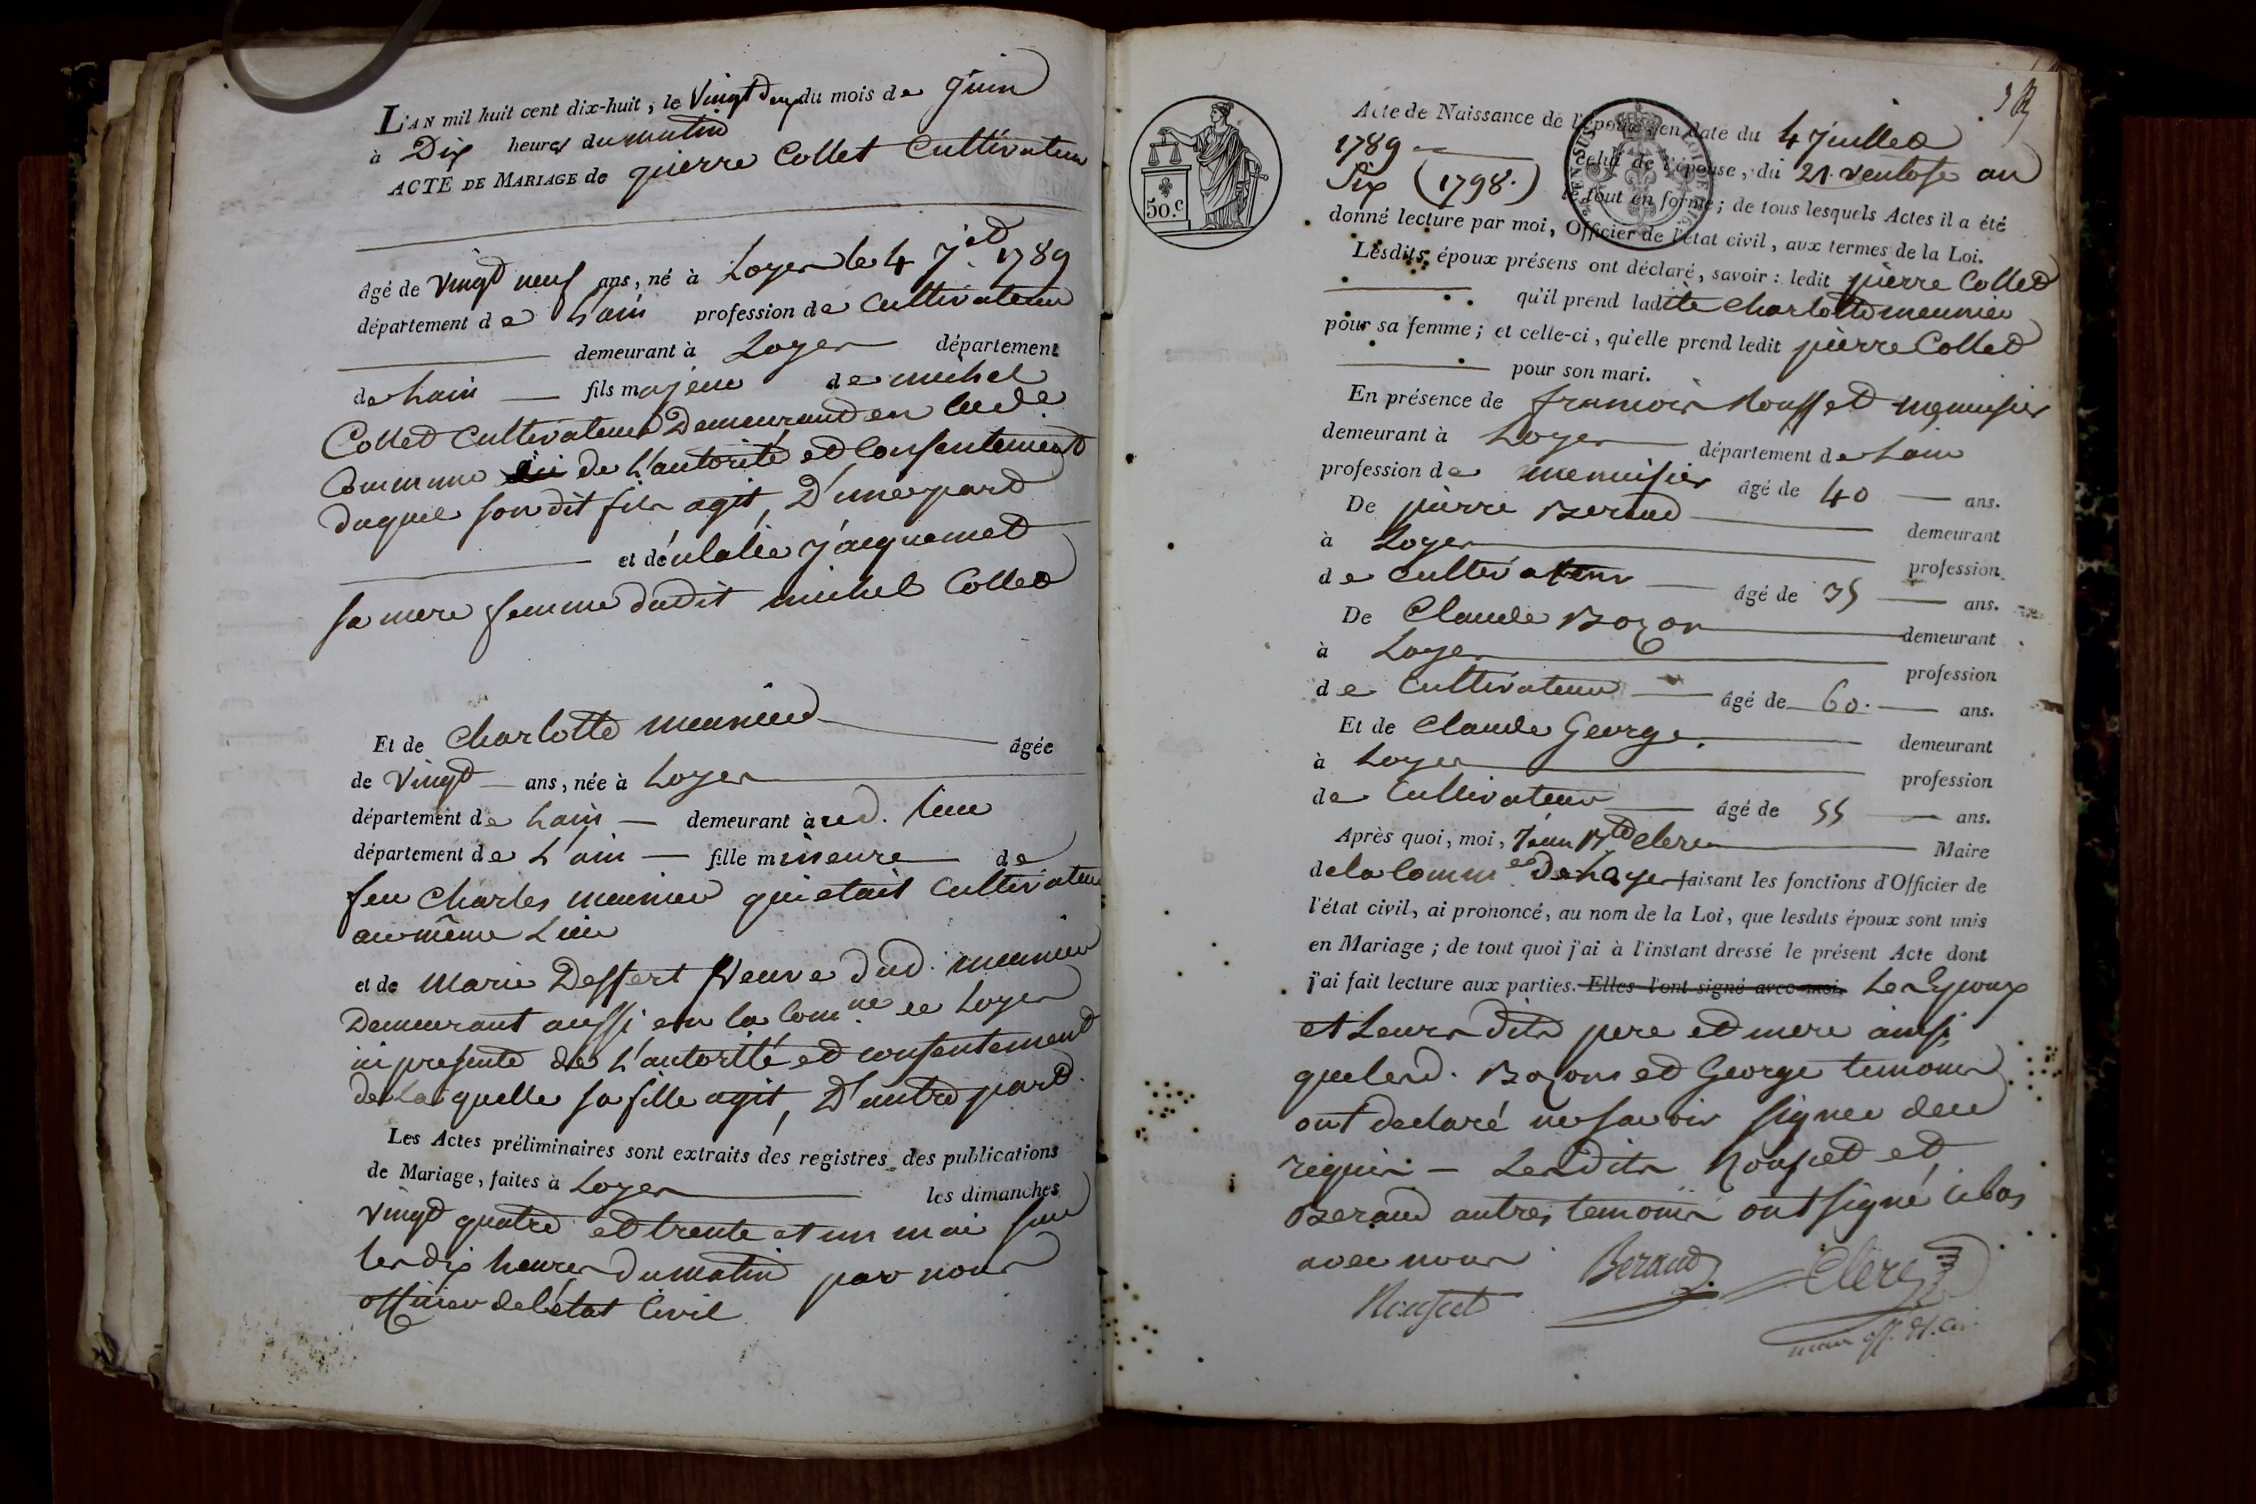 L'AN mil huit cent dix-huit, le Vingt deux du mois de Juin
à Dix heures du matin
ACTE DE MARIAGE de pierre Collet Cultivateur
âgé de vingt neuf ans, né à Loyes le 4 Jet 1789
département de Lain profession de Cultivateur
demeurant à Loyes département
de Lain fils majeur de michel
Collet Cultivateur Demeurant en lade
Commune de L'autorité et Consentement
duquel son dit fils agit, D'une part
et d'eulalie Jacquemet
sa mere femme dudit michel Collet
Et de Charlotte meunier âgée
de Vingt ans, née à Loyes
département de Lain demeurant aud. lieu
département de L'ain fille mineure de
feu Charles meunier qui etait Cultivateur
au même Lieu
et de Marie Dessert Veuve dud. meunier
Demeurant aussi en la Comne de Loyes
ici presente de L'autorité et consentement
de Laquelle sa fille agit, D'autre part.
Les Actes préliminaires sont extraits des registres des publications
de Mariage, faites à Loyes les dimanches
vingt quatre et trente et un mai sur
les dix heures du matin par nous
officier de l'état Civil
Acte de Naissance de l'époux, en date du 4 Juillet
1789 celui de l'épouse, du 21 ventose an
Six (1798.) le tout en forme; de tous lesquels Actes il a été
donné lecture par moi, Officier de l'état civil, aux termes de la Loi.
50.c
Lesdits époux présens ont déclaré, savoir: ledit pierre Collet
qu'il prend ladite Charlotte meunier
pour sa femme; et celle-ci, qu'elle prend ledit pierre Collet
pour son mari.
En présence de francois Rousset menuisier
demeurant à Loyes département de Lain
profession de menuisier âgé de 40 ans.
De pierre Beraud demeurant
à Loyes profession
de Cultivateur âgé de 35 ans.
De Claude Bozon demeurant
à Loyes profession
de Cultivateur âgé de 60. ans.
Et de Claude George. demeurant
à Loyes profession
de Cultivateur âgé de 55 ans.
Après quoi, moi, Jean Bte Clerc Maire
de la Comme De Loyes faisant les fonctions d'Officier de
l'état civil, ai prononcé, au nom de la Loi, que lesdits époux sont unis
en Mariage; de tout quoi j'ai à l'instant dressé le présent Acte dont
j'ai fait lecture aux parties. Elles l'ont signé avec moi. Les Epoux
et Leurs dits pere et mere ainsi
que lesd. Bozon et George temoins
ont declaré ne savoir signer de ce
requis – Lesdits Rousset et
Beraud autres temoins ont signé ci bas
avec nous
Beraud
Clerc
Rousset
maire off. et. civ.